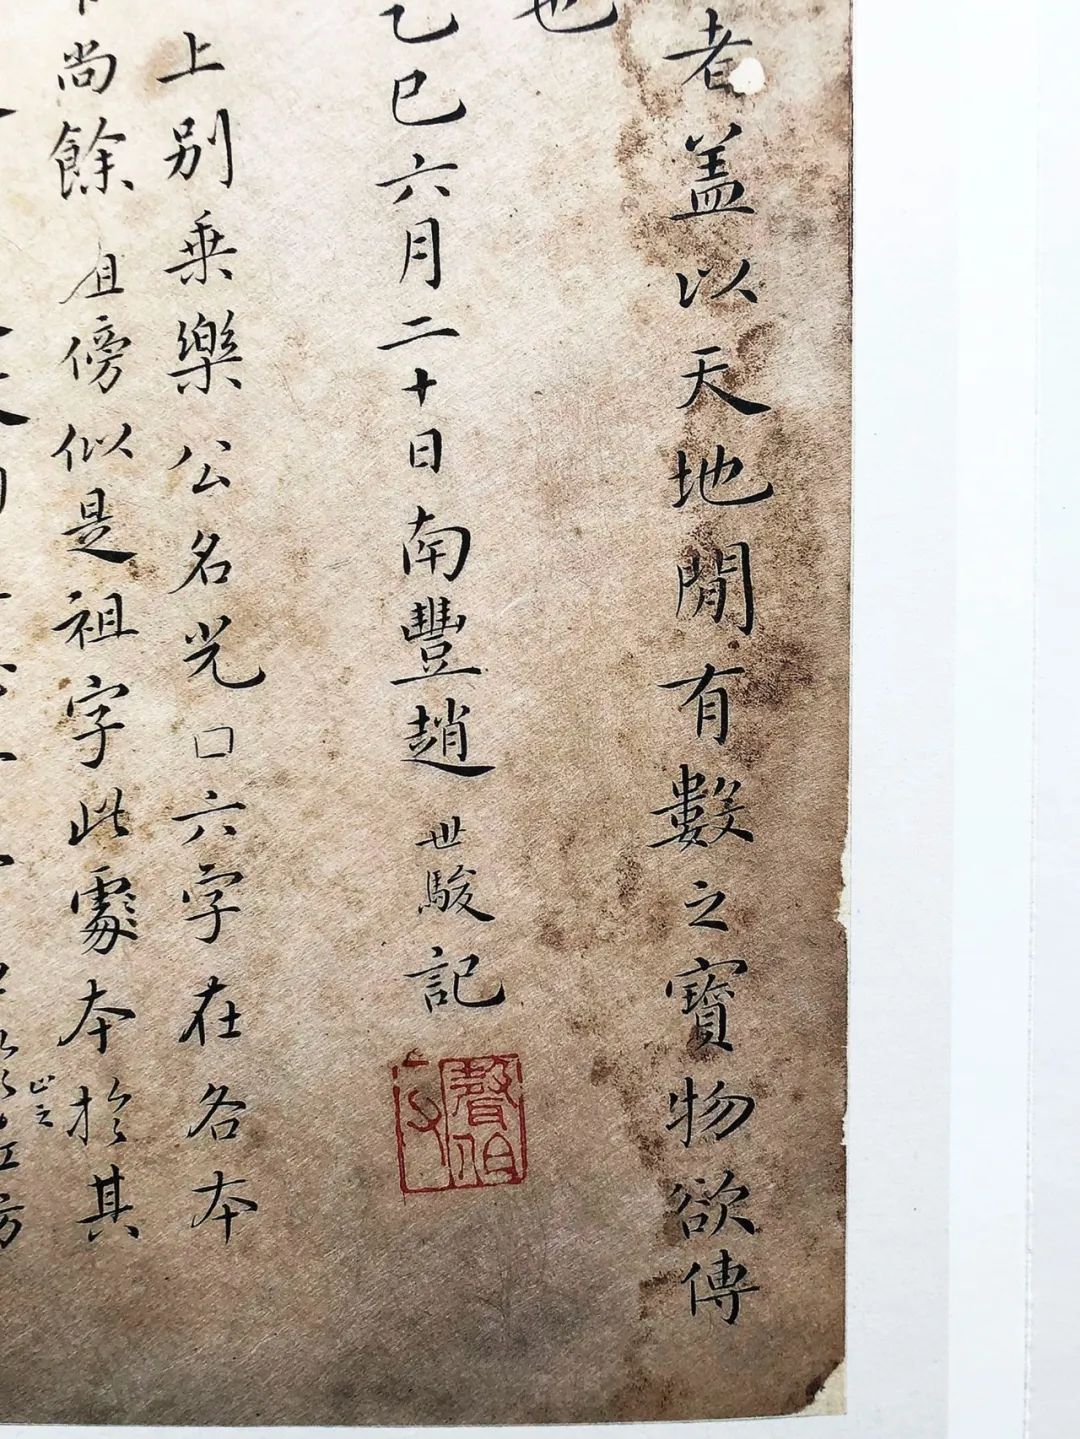 者蓋以天地閒有數之寶物欲傳
也
乙巳六月二十日南豐趙世駿記
聲伯
上別乗樂公名光口六字在各本
尚餘且傍似是祖字此處本於其